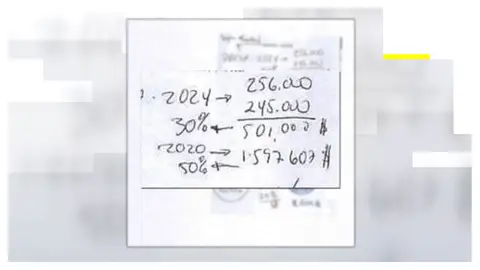 2024 → 256.000
245.000
30% ← 501.000 $
2020 → 1.597.607 $
50% ←